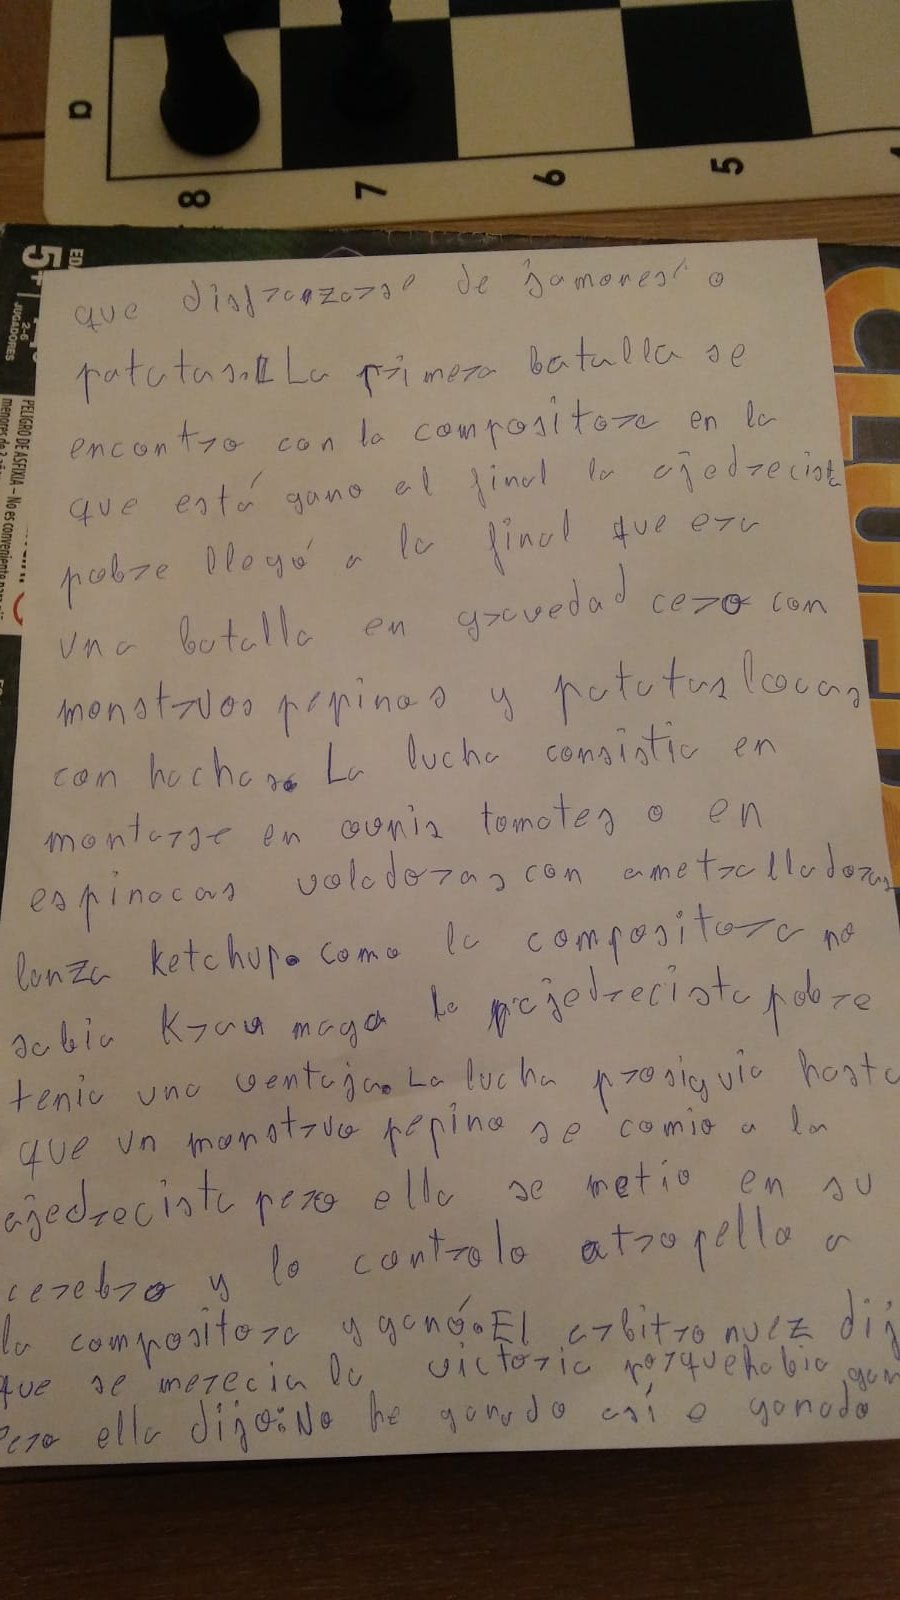 a
8 7 6 5
5+
2-6
JUGADORES
PELIGRO DE ASFIXIA – No es conveniente para
menores de
que disfrazarse de jamones o
patatas. La primera batalla se
encontro con la compositora en la
que está gano al final la ajedrecista
pobre llegó a la final que era
una batalla en gravedad cero con
monstruos pepinos y patatas locas
con hachas. La lucha consistia en
montarse en ovnis tomates o en
espinacas voladoras con ametralladoras
lanza ketchup. como la compositora no
sabia Krau maga la ajedrecista pobre
tenia una ventaja. La lucha prosiguio hasta
que un monstruo pepino se comio a la
ajedrecista pero ella se metio en su
cerebro y lo controlo atropello a
la compositora y ganó. El arbitro nuez dij
que se merecia la victoria porque habia gan
Pero ella dijo: No he ganado así e ganado